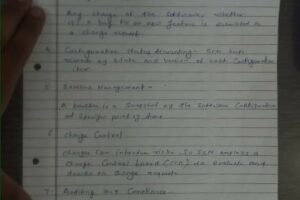 Any change of the software, whether
it's a bug fix or new feature is submitted as
a change request
4 Configuration Status Accounting - SCM keeps
records of state and version of each Configuration
item
5 Baseline Management -
A baseline is a snapshot of the Software Configuration
at specific point of time.
6 Change Control
changes can introduce risks. So SCM employs a
Change Control board (CCB) to evaluate and
decide on change requests
7 Auditing and Compliance -